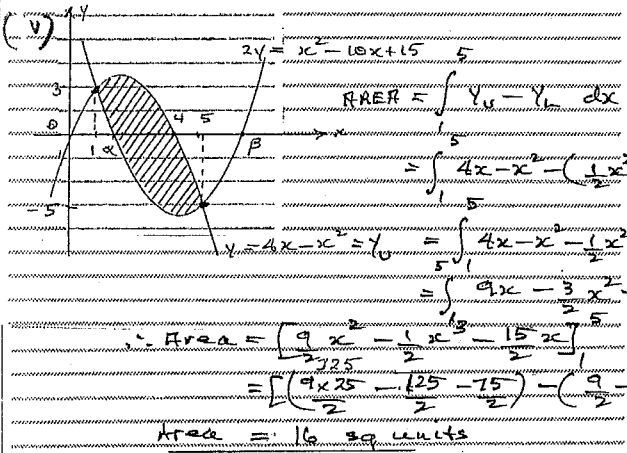 (V)
y
2y = x² - 10x + 15
3
0 1 α 4 5 β x
-5
y = 4x - x² = Yᵤ
AREA = ∫₁⁵ Yᵤ - Y_L dx
= ∫₁⁵ 4x - x² - (½x²
= ∫₁⁵ 4x - x² - ½x²
= ∫₁⁵ 9x - 3/2 x² -
∴ Area = [9/2 x² - 1/2 x³ - 15/2 x]₁⁵
= [(9×25/2 - 125/2 - 75/2) - (9/2 -
Area = 16 sq units